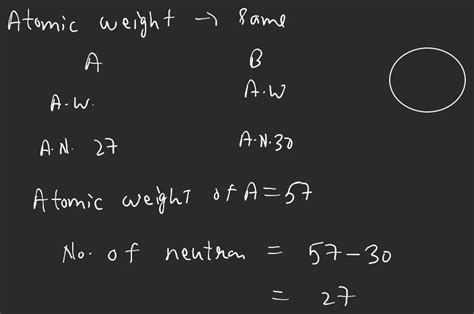 Atomic weight → Same
A B
A.W. A.W
A.N. 27 A.N. 30
Atomic weight of A = 57
No. of neutron = 57 - 30
= 27